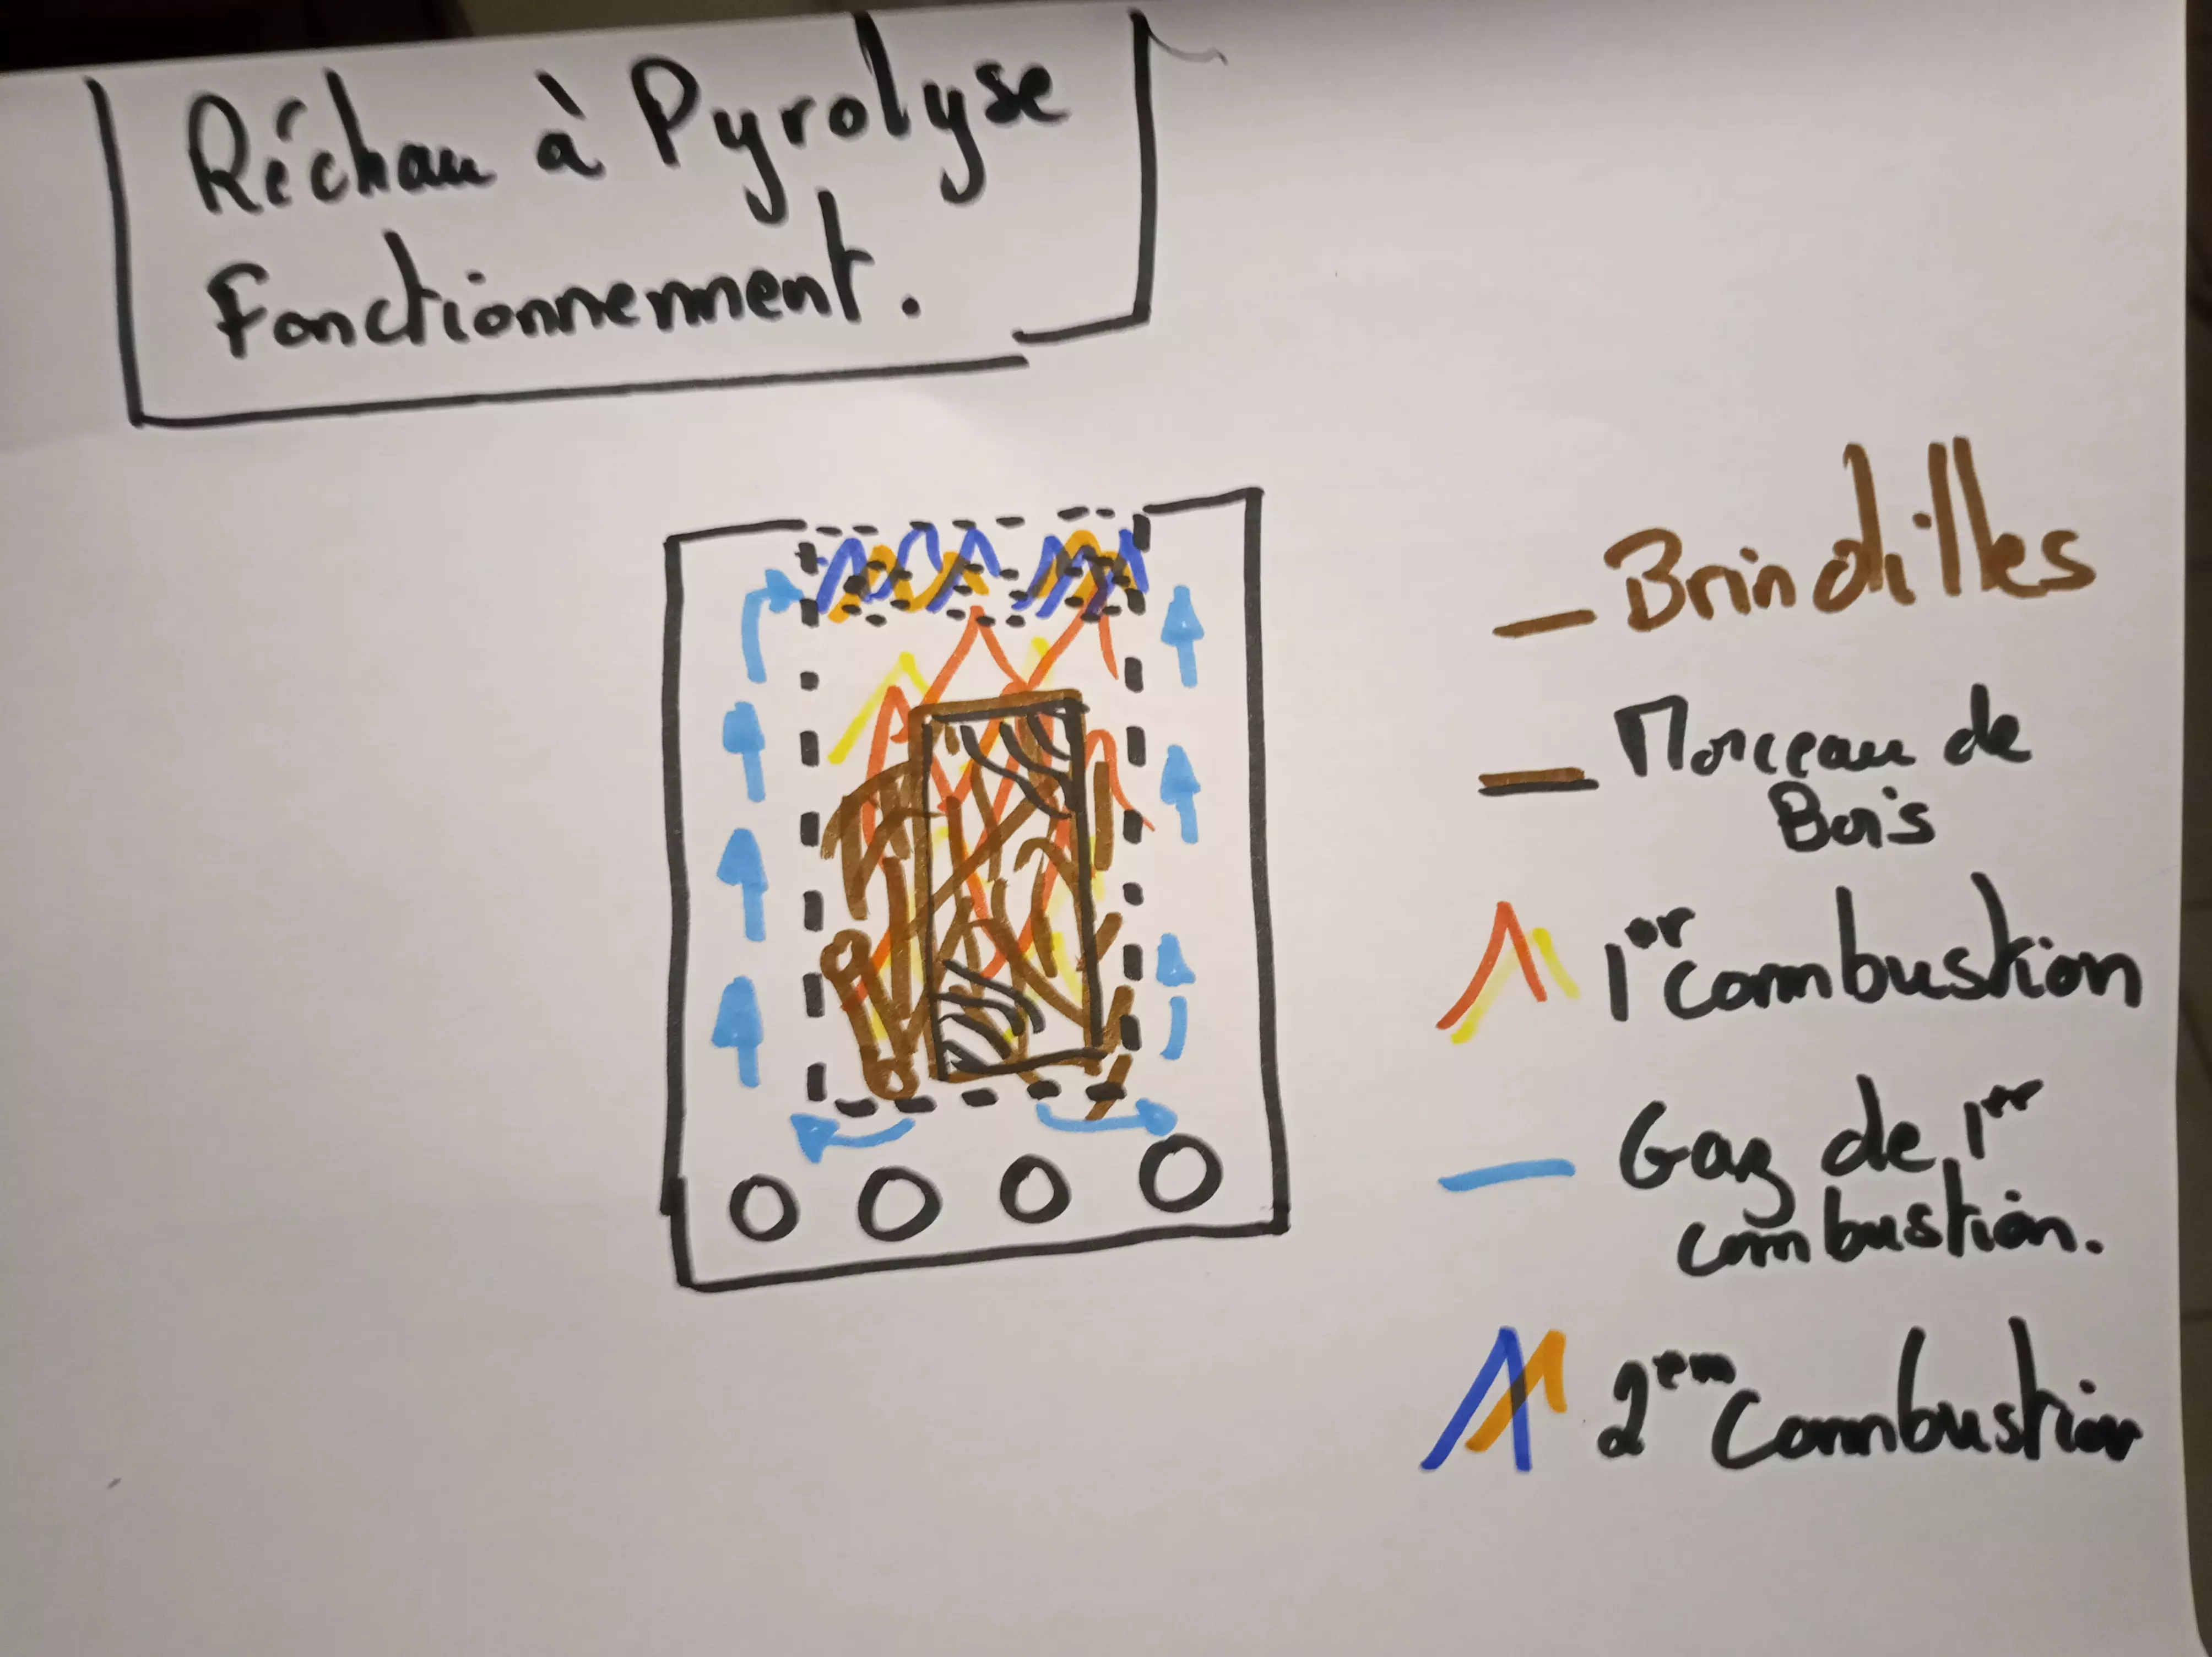 Réchau à Pyrolyse
fonctionnement.
Brindilles
Morceau de
Bois
1er combustion
Gaz de 1er
combustion.
2em Combustion